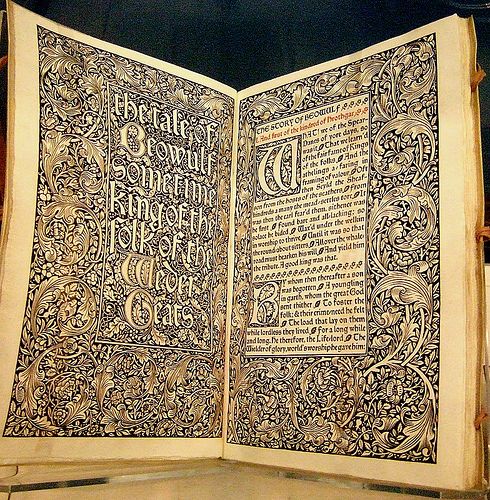 the tale of
Beowulf
Sometime
king of the
folk of the
Weder
Geats
THE STORY OF BEOWULF
And first of the kindred of Hrothgar.
WHAT! we of the Spear-
Danes of yore days, so
was it
That we learn'd
of the fair fame of kings
of the folks
And the
athelings a-faring in
framing of valour.
Oft
then Scyld the Sheaf-
son from the hosts of the scathers, From
hindreds a many the mead-settles tore; It
was then the earl fear'd them, sithence was
he first
Found bare and all-lacking; so
solace he bided,
Wax'd under the welkin
in worship to thrive,
Until it was so that
the round-about sitters,
All over the whale-
road must hearken his will
And yield him
the tribute. A good king was that.
BY whom then thereafter a son
was begotten,
A youngling
in garth, whom the great God
sent thither
To foster the
folk; & their crime-need he felt
The load that lay on them
while lordless they lived
For a long while
and long. He therefore, the Life-lord,
The
Wielder of glory, world's worship he gave him: